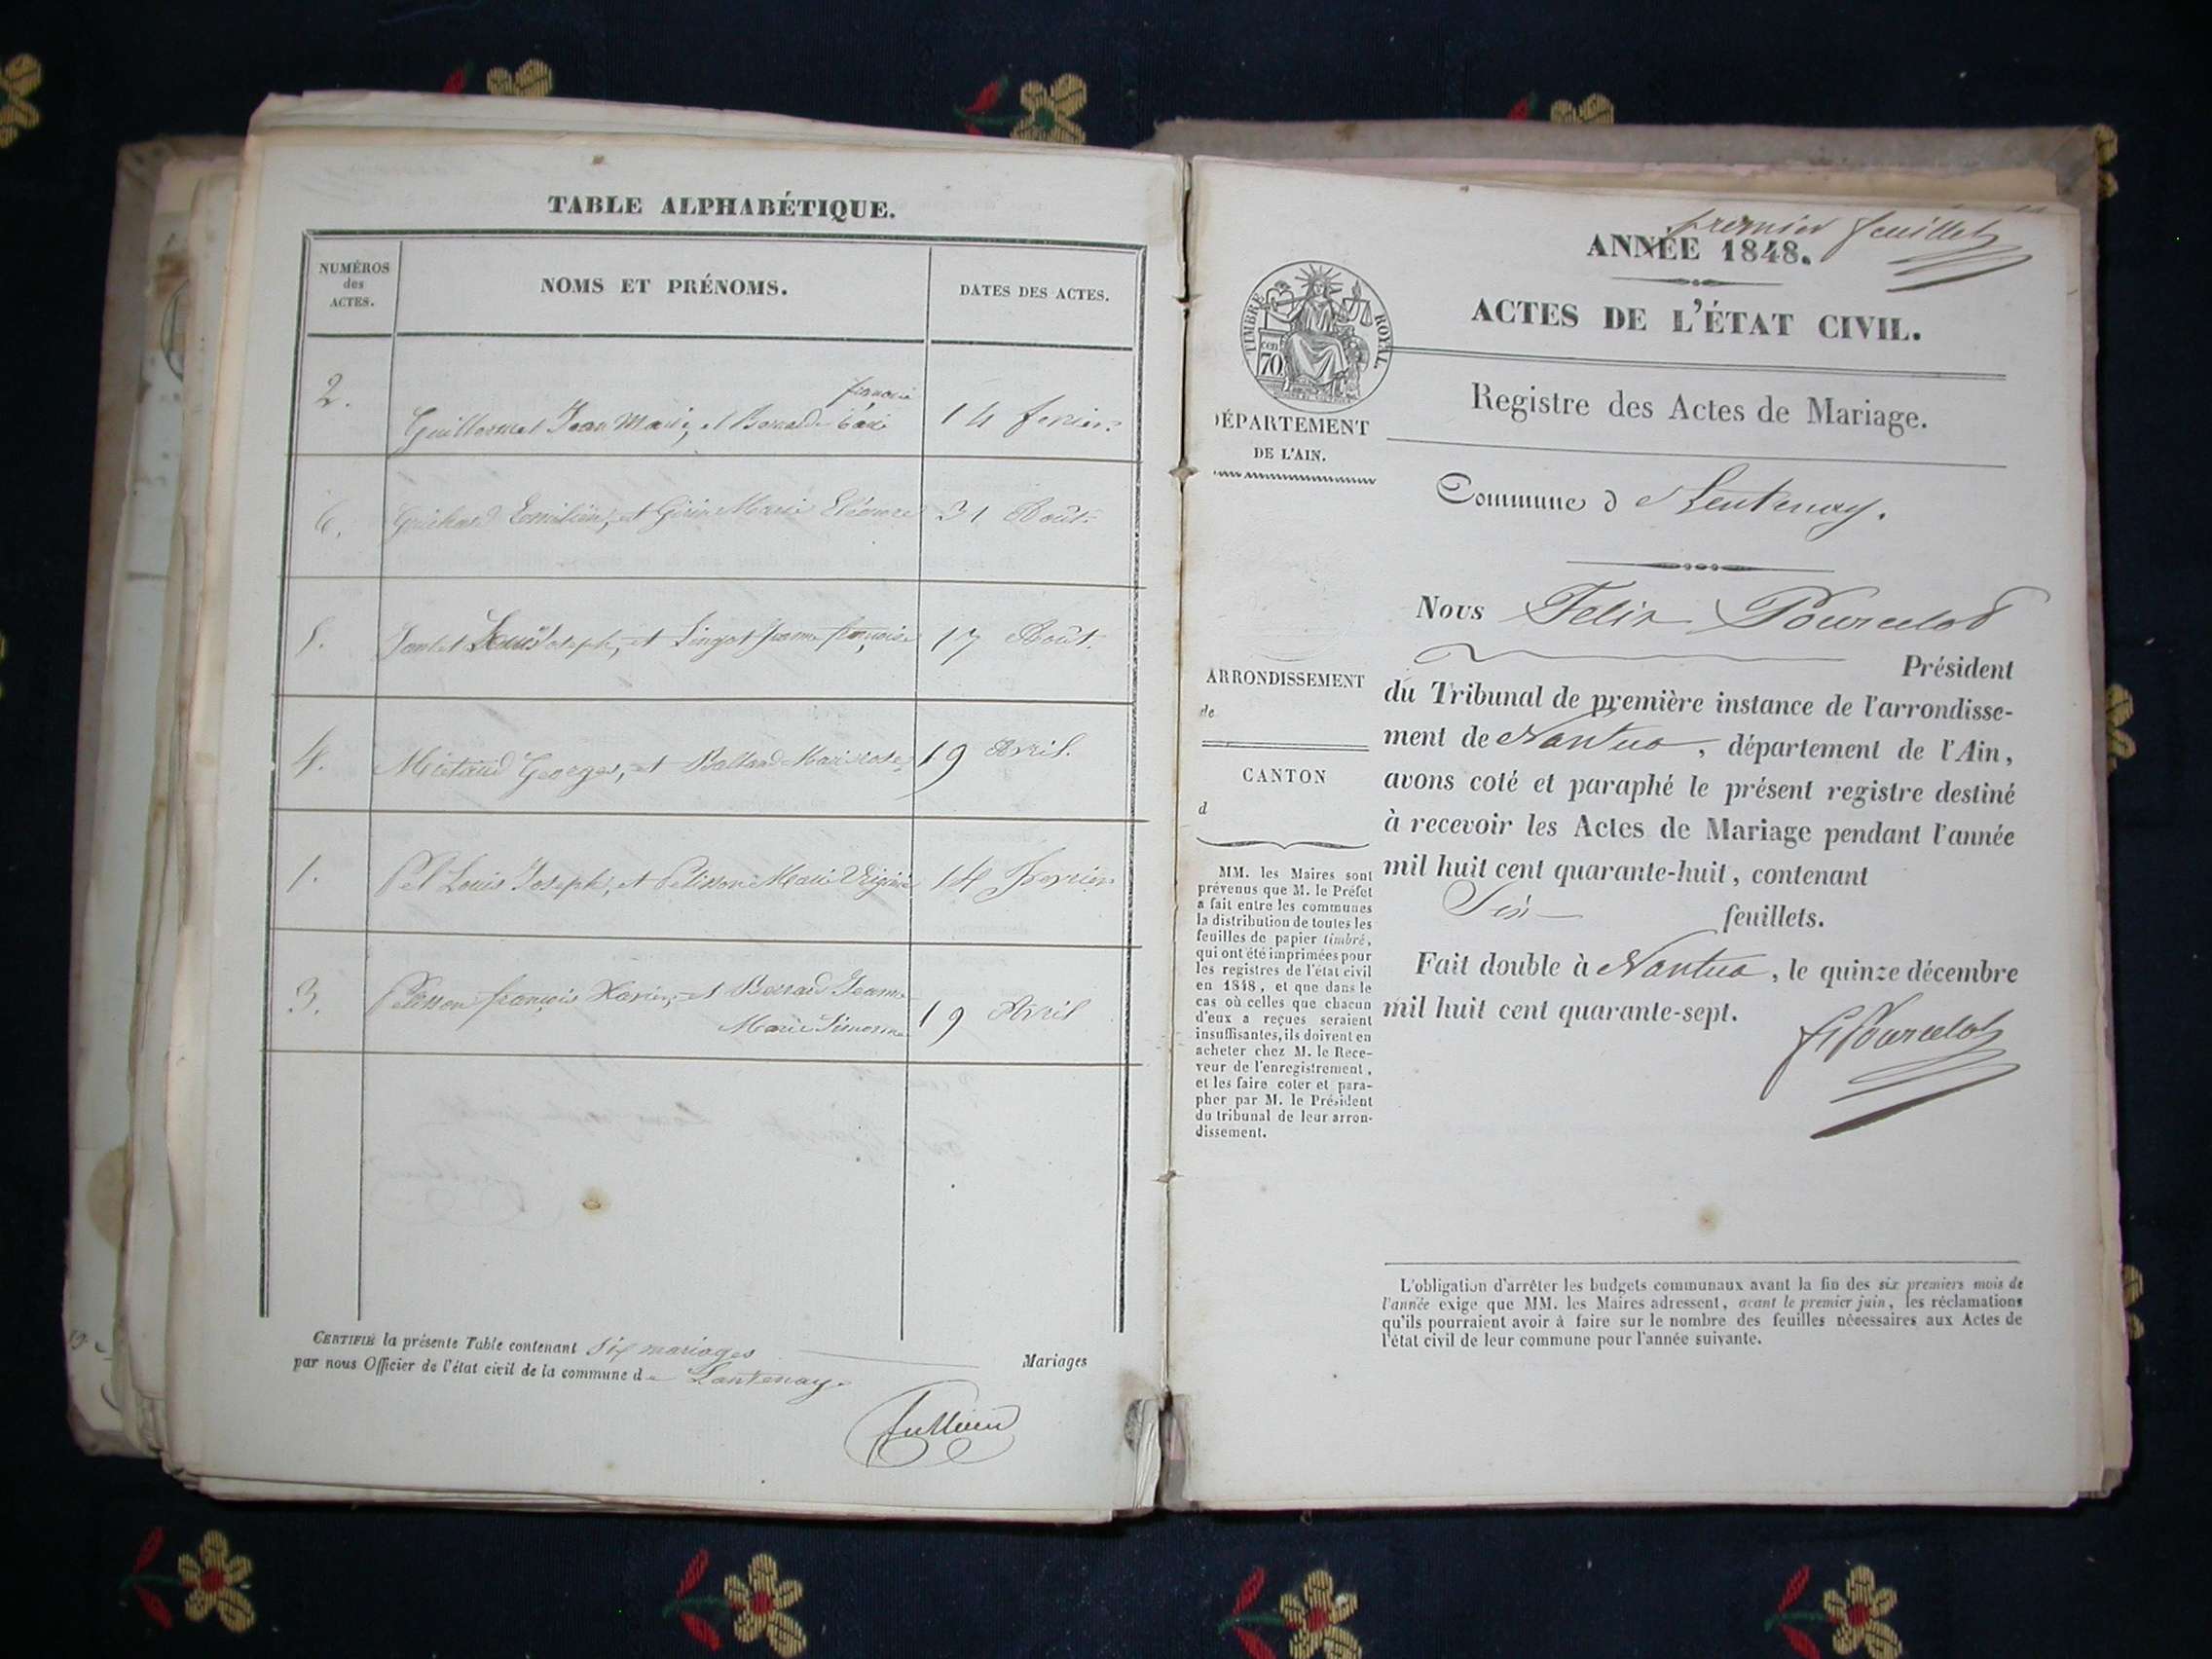 TABLE ALPHABÉTIQUE.
NUMÉROS
des
ACTES.
NOMS ET PRÉNOMS.
DATES DES ACTES.
2.
Guillermet Jean Marie, et
14 fevrier.
6.
Guichard Emilien, et Marie Eléonore
31 Août.
5.
Louis Joseph, et Jeanne françoise
17 Août.
4.
Georges, et Balland Marie rose
19 Avril.
1.
Pel Louis Joseph, et Pelisson Marie Virginie
14 Fevrier
3.
Pelisson françois Xavier, et Berrard Jeanne
Marie Simonne
19 Avril
CERTIFIÉ la présente Table contenant six mariages Mariages
par nous Officier de l'état civil de la commune de Lantenay.
premier feuillet
ANNÉE 1848.
TIMBRE ROYAL
cen
70
ACTES DE L'ÉTAT CIVIL.
Registre des Actes de Mariage.
DÉPARTEMENT
DE L'AIN.
Commune d Lentenay.
Nous Felix Pourcelot
Président
du Tribunal de première instance de l'arrondisse-
ment de Nantua, département de l'Ain,
avons coté et paraphé le présent registre destiné
à recevoir les Actes de Mariage pendant l'année
mil huit cent quarante-huit, contenant
Six feuillets.
Fait double à Nantua, le quinze décembre
mil huit cent quarante-sept.
F Pourcelot
ARRONDISSEMENT
de
CANTON
d
MM. les Maires sont
prévenus que M. le Préfet
a fait entre les communes
la distribution de toutes les
feuilles de papier timbré,
qui ont été imprimées pour
les registres de l'état civil
en 1848, et que dans le
cas où celles que chacun
d'eux a reçues seraient
insuffisantes, ils doivent en
acheter chez M. le Rece-
veur de l'enregistrement,
et les faire coter et para-
pher par M. le Président
du tribunal de leur arron-
dissement.
L'obligation d'arrêter les budgets communaux avant la fin des six premiers mois de
l'année exige que MM. les Maires adressent, avant le premier juin, les réclamations
qu'ils pourraient avoir à faire sur le nombre des feuilles nécessaires aux Actes de
l'état civil de leur commune pour l'année suivante.